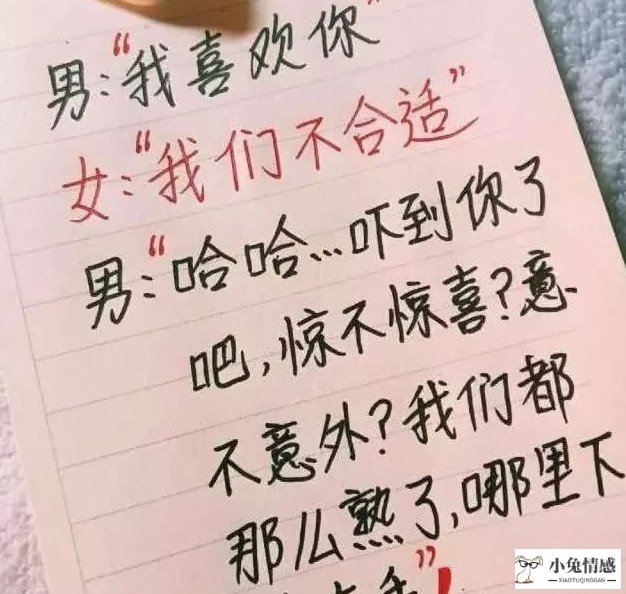 男:“我喜欢你”
女:“我们不合适”
男:“哈哈...吓到你了
吧,惊不惊喜?意
不意外?我们都
那么熟了,哪里下
手”
小兔情感
XIAOTUQINGGAN